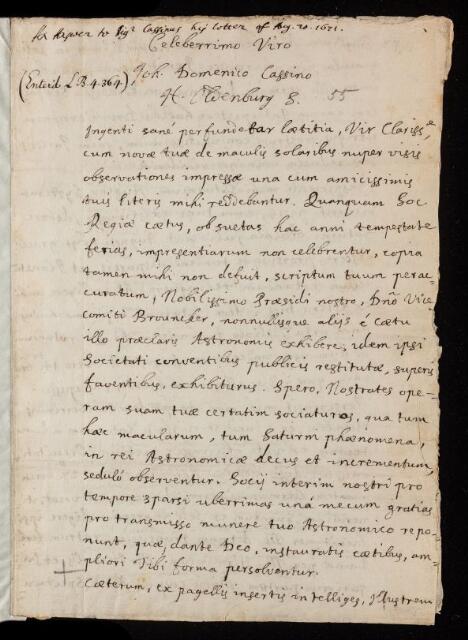 An Answer to Sigr Cassinus his letter of Aug. 20. 1671.
Celeberrimo Viro
(Enterd L.B. 4. 364)
Joh. Domenico Cassino
H. Oldenburg S. 55
Ingenti sané perfundebar lætitia, Vir Clarissē,
cum novæ tuæ de maculis solaribus nuper visis
observationes impressæ una cum amicissimis
tuis literis mihi reddebantur. Quanquam Soc
Regiæ cætus, ob suetas hac anni tempestate
ferias, impresentiarum non celebrentur, copia
tamen mihi non defuit, scriptum tuum perac-
curatum, Nobilissimo Præsidi nostro, Dn̄o Vice
comiti Brouncker, nonnullisque alijs é Cætu
illo præclaris Astronomis exhibere; idem ipsi
Societati conventibus publicis restitutæ, superis
faventibus, exhibiturus. Spero, Nostrates ope-
ram suam tuæ certatim sociaturos, qua tum
hæc macularum, tum Saturni phænomena,
in rei Astronomicæ decus et incrementum,
seduló observentur. Socij interim nostri pro
tempore sparsi uberrimas uná mecum gratias
pro transmisso munere tuo Astronomico repo-
nunt, quæ, dante Deo, instauratis cætibus, am-
pliori Tibi forma persolventur.
Cæterum, ex pagellis insertis intelliges, Illustrem